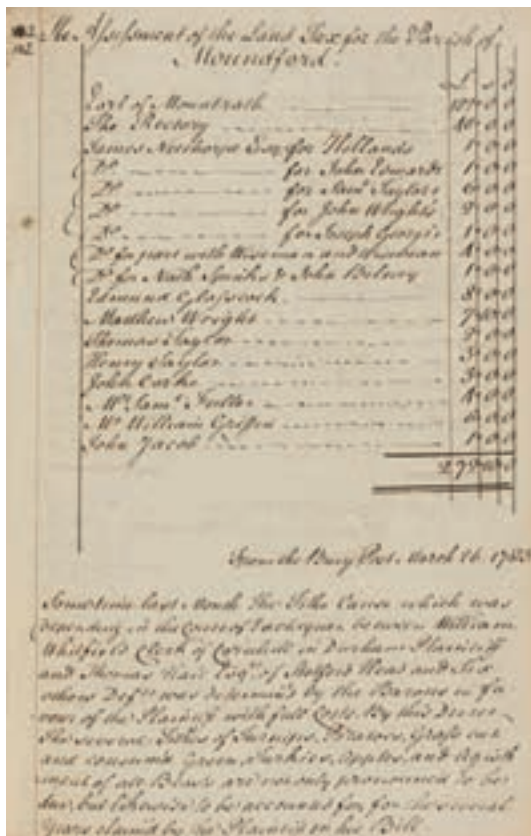 The Assessment of the Land Tax for the Parish of
Moundford.
£ s d
Earl of Mountrath
The Rectory 40 0 0
James Nelthorpe Esqr for Hollands 1 0 0
Do for John Edwards 1 0 0
Do for Saml Taylors 6 0 0
Do for John Wrights 0 0
Do for Joseph Georges 1 0 0
Do for part with Wiseman and 4 0 0
Do for Nath and John 1 0 0
Edmund Glasscock 8 0 0
Matthew Wright 7 10 0
Thomas Taylor 0 0
Henry Taylor 3 0 0
John Carke 3 0 0
Mr Saml Fuller 4 0 0
Mr William Griffin 0 0
John Jacob 1 0 0
10 0
From the Bury Post March 26. 1783
Sometime last Month The Tithe Cause which was
depending in the Court of Exchequer between William
Whitfield Clerk of Cornhill in Durham Plaintiff
and Thomas Esqr. of Moor and Six
others Defts was determined by the Barons in fa
vour of the Plaintiff with full Costs. By this Decree
The several Tithes of Turnips, Potatoes, Grass cut
and consumed Green, Turkies, Apples, and Agist
ment of all Beasts are not only pronounced to be
due, but likewise to be accounted for for the several
Years claim'd by the Plaintiff in his Bill